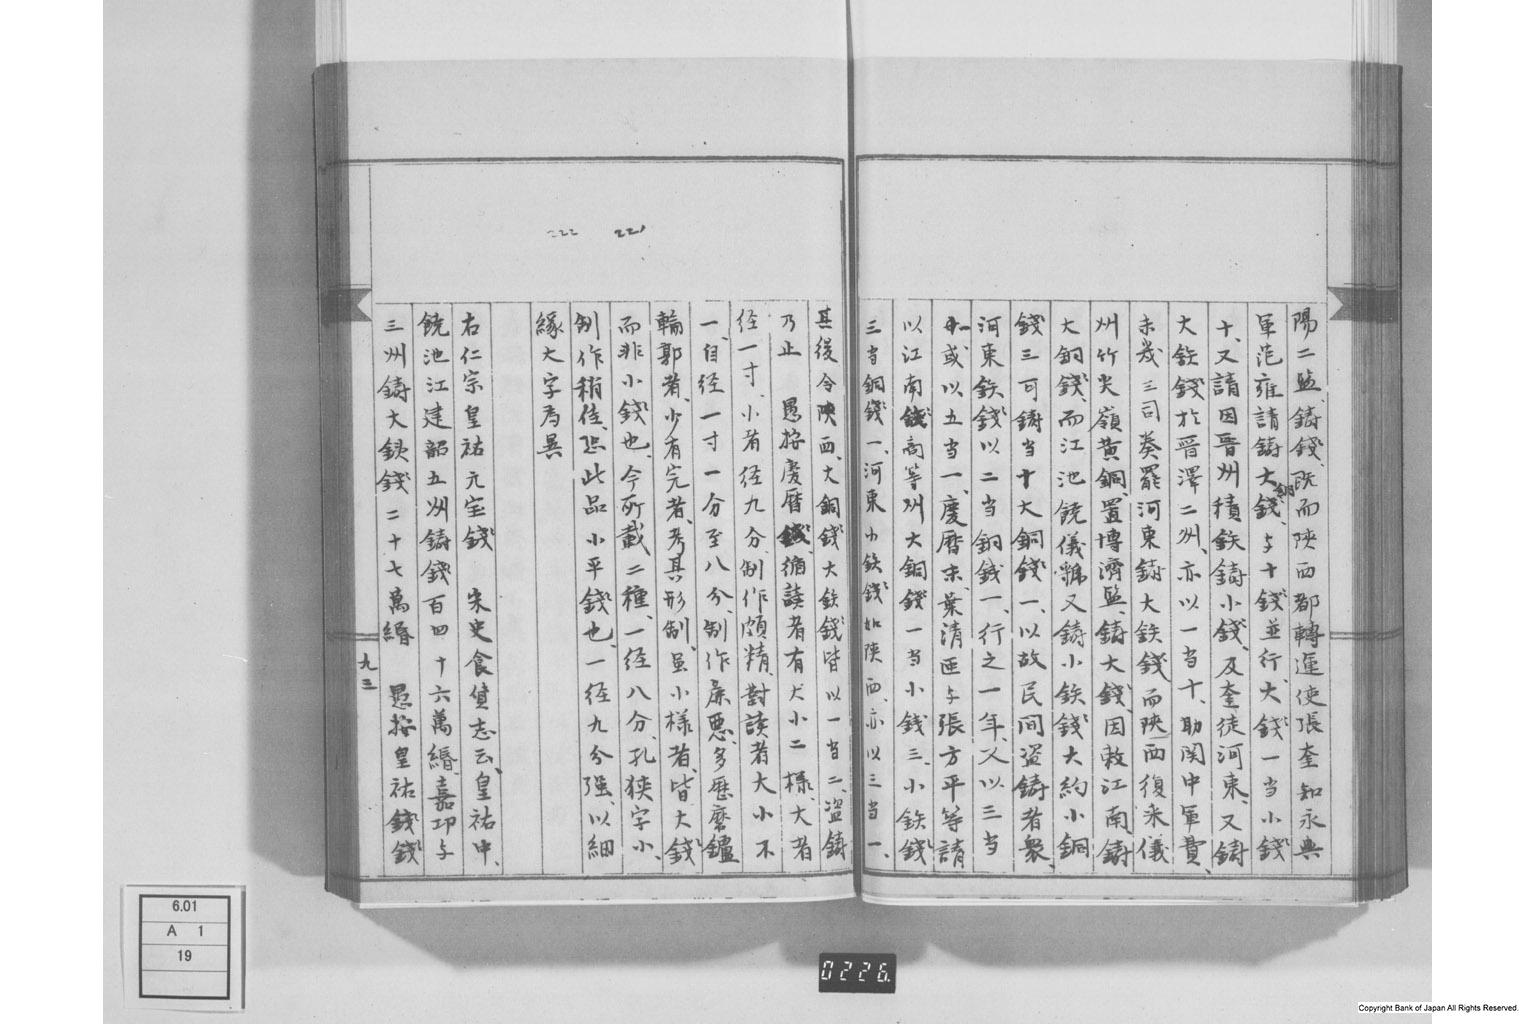 陽二監鋳錢既而陝西都轉運使張奎知永興
軍范雍請鋳大銅錢与十錢並行大錢一当小錢
十又請因晋州積鉄鋳小錢及奎徒河東又鋳
大鉄錢於晋澤二州亦以一当十助関中軍費
未幾三司奏罷河東鋳大鉄錢而陝西復采儀
州竹尖嶺黄銅置博濟監鋳大錢因敕江南鋳
大銅錢而江池饒儀虢又鋳小鉄錢大約小銅
錢三可鋳当十大銅錢一以故民间盗鋳者衆
河東鉄錢以二当銅錢一行之一年又以三当
一或以五当一慶暦末葉清臣与張方平等請
以江南錢商等州大銅錢一当小錢三小鉄錢
三当銅錢一河東小鉄錢如陝西亦以三当一
221
222
其後令陝西大銅錢大鉄錢皆以一当二盗鋳
乃止 愚按慶暦錢循読者有大小二様大者
径一寸小者径九分制作頗精對読者大小不
一自径一寸一分至八分制作麁悪多歴磨鑢
輪郭者少有完者考其形制虽小様者皆大錢
而非小錢也今所載二種一径八分孔狭字小
制作稍佳恐此品小平錢也一径九分强以細
緣大字為異
右仁宗皇祐元宝錢 宋史食貨志云皇祐中
饒池江建韶五州鋳錢百四十六萬緡嘉邛与
三州鋳大鉄錢二十七萬緡 愚按皇祐錢錢
九三
6.01
A 1
19
0226
Copyright Bank of Japan All Rights Reserved.